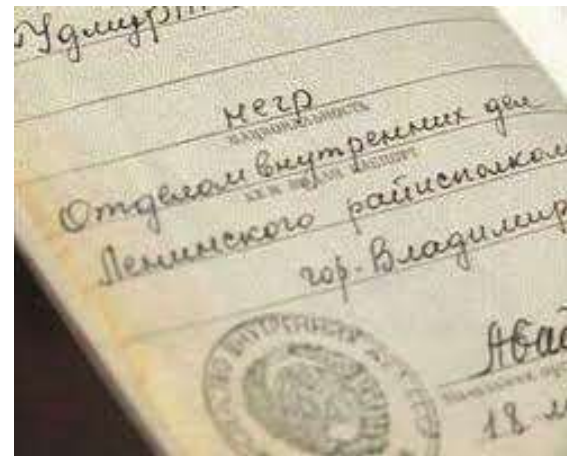 Удмурт
негр
национальность
Отделом внутренних дел
кем выдан паспорт
Ленинского райисполкома
гор. Владимир
Абад
18